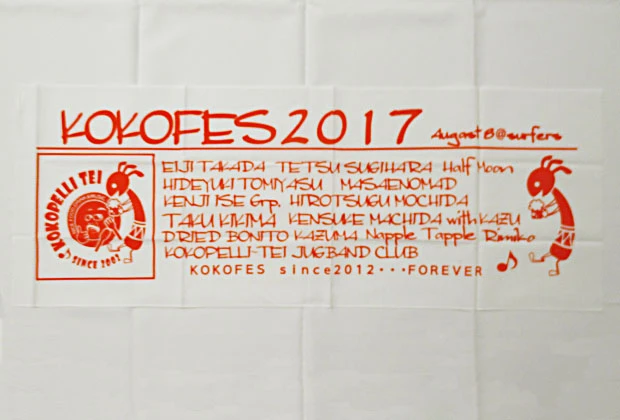 KOKOFES 2017 August 8@surfers
KOKOPELLI TEI
SINCE 2002
EIJI TAKADA TETSU SUGIHARA Half Moon
HIDEYUKI TOMIYASU MASAENOMAD
KENJI ISE Grp. HIROTSUGU MOCHIDA
TAKU KIKIMA KENSUKE MACHIDA with KAZU
DRIED BONITO KAZUMA Napple Tapple Rimiko
KOKOPELLI-TEI JUGBAND CLUB
KOKOFES since2012···FOREVER